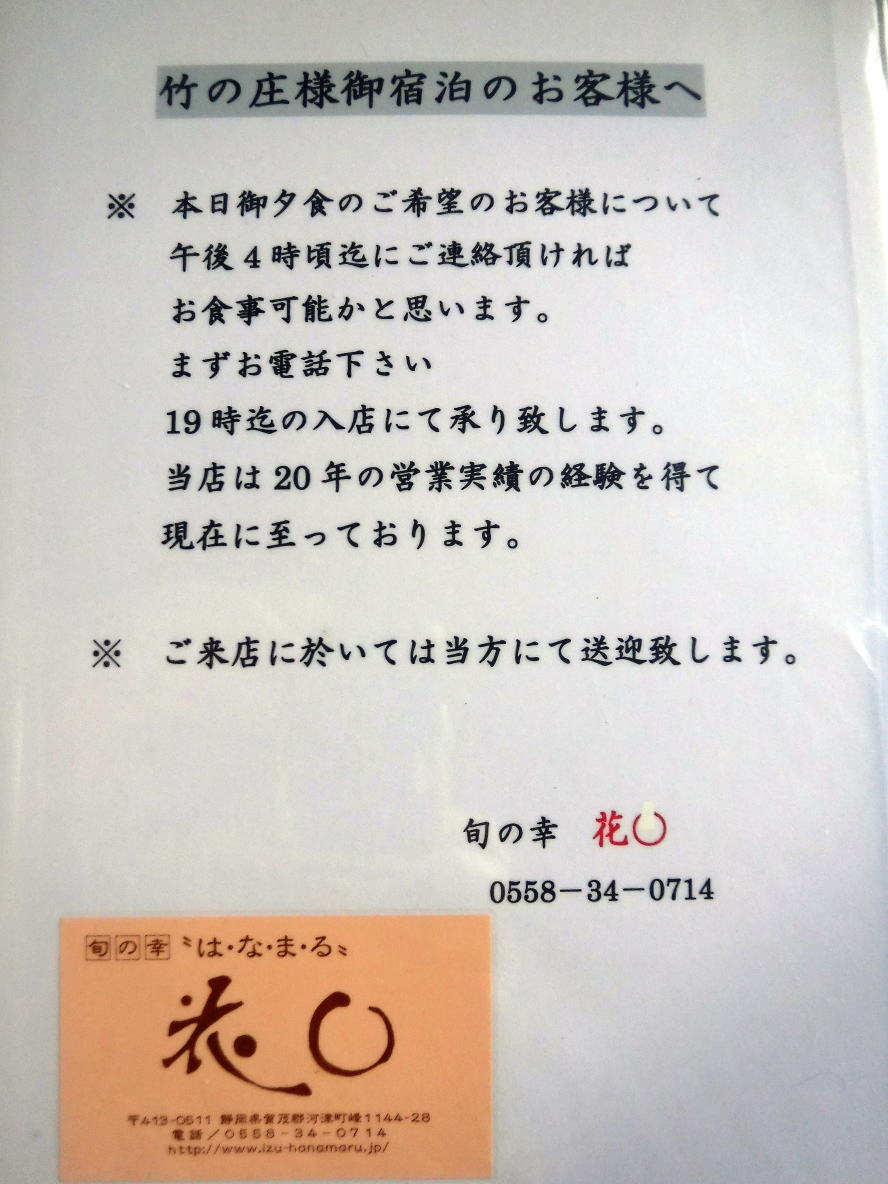 竹の庄様御宿泊のお客様へ
※ 本日御夕食のご希望のお客様について
午後4時頃迄にご連絡頂ければ
お食事可能かと思います。
まずお電話下さい
19時迄の入店にて承り致します。
当店は20年の営業実績の経験を得て
現在に至っております。
※ ご来店に於いては当方にて送迎致します。
旬の幸 花〇
0558-34-0714
旬の幸 〝は・な・ま・る〟
花〇
〒413-0511 静岡県賀茂郡河津町峰1144-28
電話/0558-34-0714
http://www.izu-hanamaru.jp/